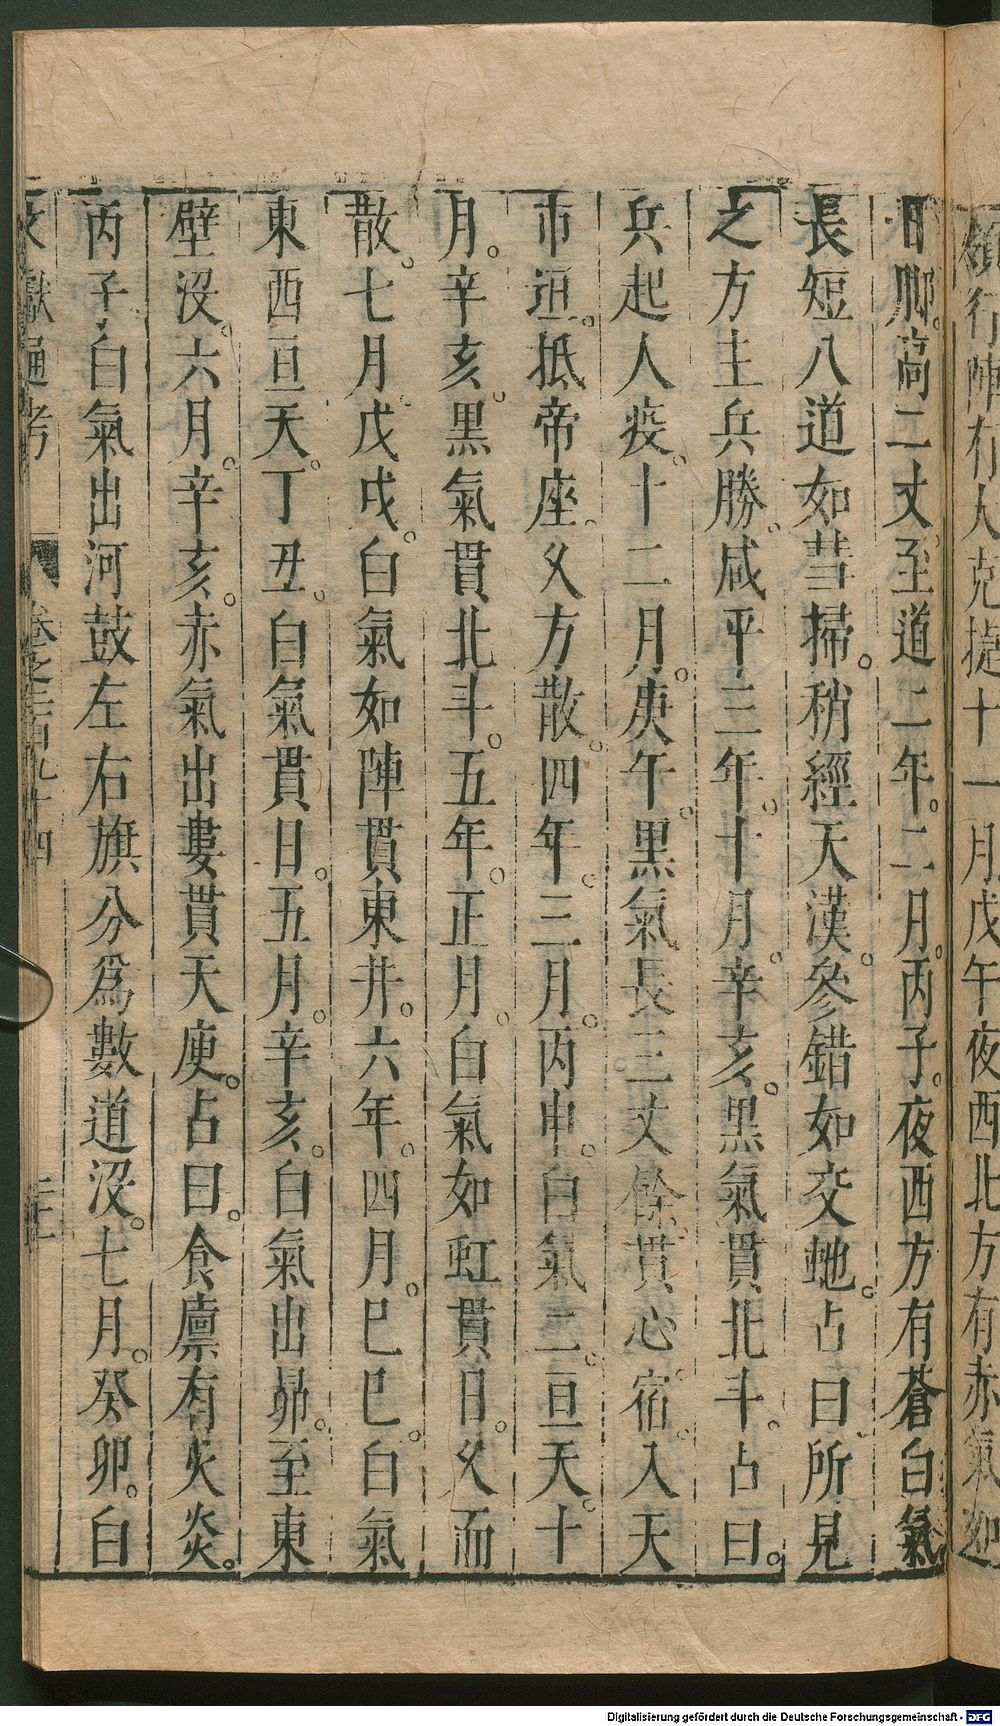 領行陣有人克捷十一月戊午夜西北方有赤氣
日脚高二丈至道二年。二月。丙子。夜西方有蒼白氣
長短八道如彗掃。稍經天漢。參錯如交虵。占曰所見
之方主兵勝。咸平三年。十月。辛亥。黑氣貫北斗。占曰。
兵起人疫。十二月。庚午。黑氣長三丈餘。貫心宿。入天
市垣。抵帝座。久方散。四年。三月。丙申。白氣二。亘天。十
月。辛亥。黑氣貫北斗。五年。正月。白氣如虹貫日。久而
散。七月戊戌。白氣如陣貫東井。六年。四月。巳巳。白氣
東西亘天。丁丑。白氣貫日。五月。辛亥。白氣出昴。至東
壁沒。六月。辛亥。赤氣出婁貫天庾。占曰。食廩有火災。
丙子白氣出河鼓左右旗分爲數道沒。七月。癸卯。白
文獻通考
卷之二百九十四
Digitalisierung gefördert durch die Deutsche Forschungsgemeinschaft - DFG